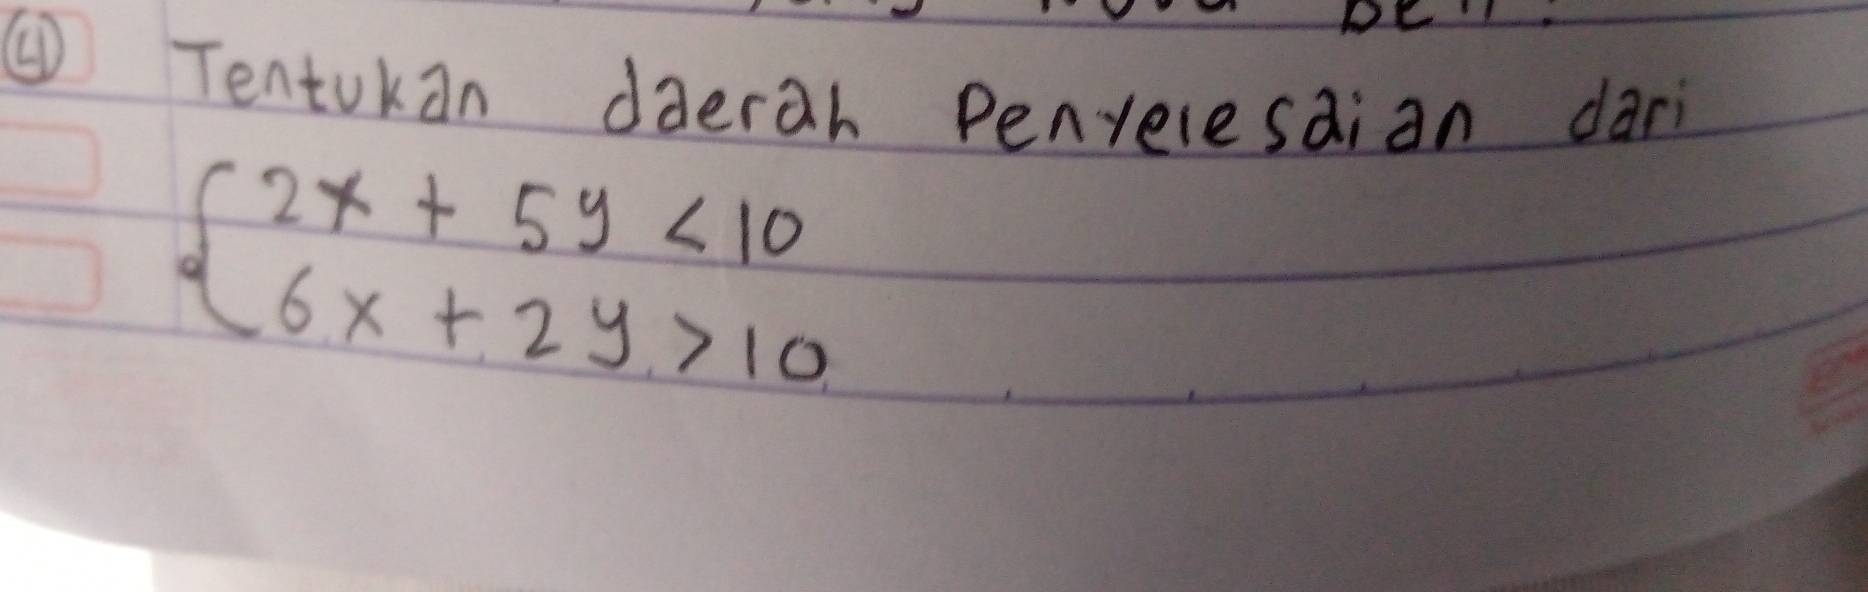 ④ Tentukan daerah Penyelesaian dari
2x + 5y < 10
6x + 2y > 10